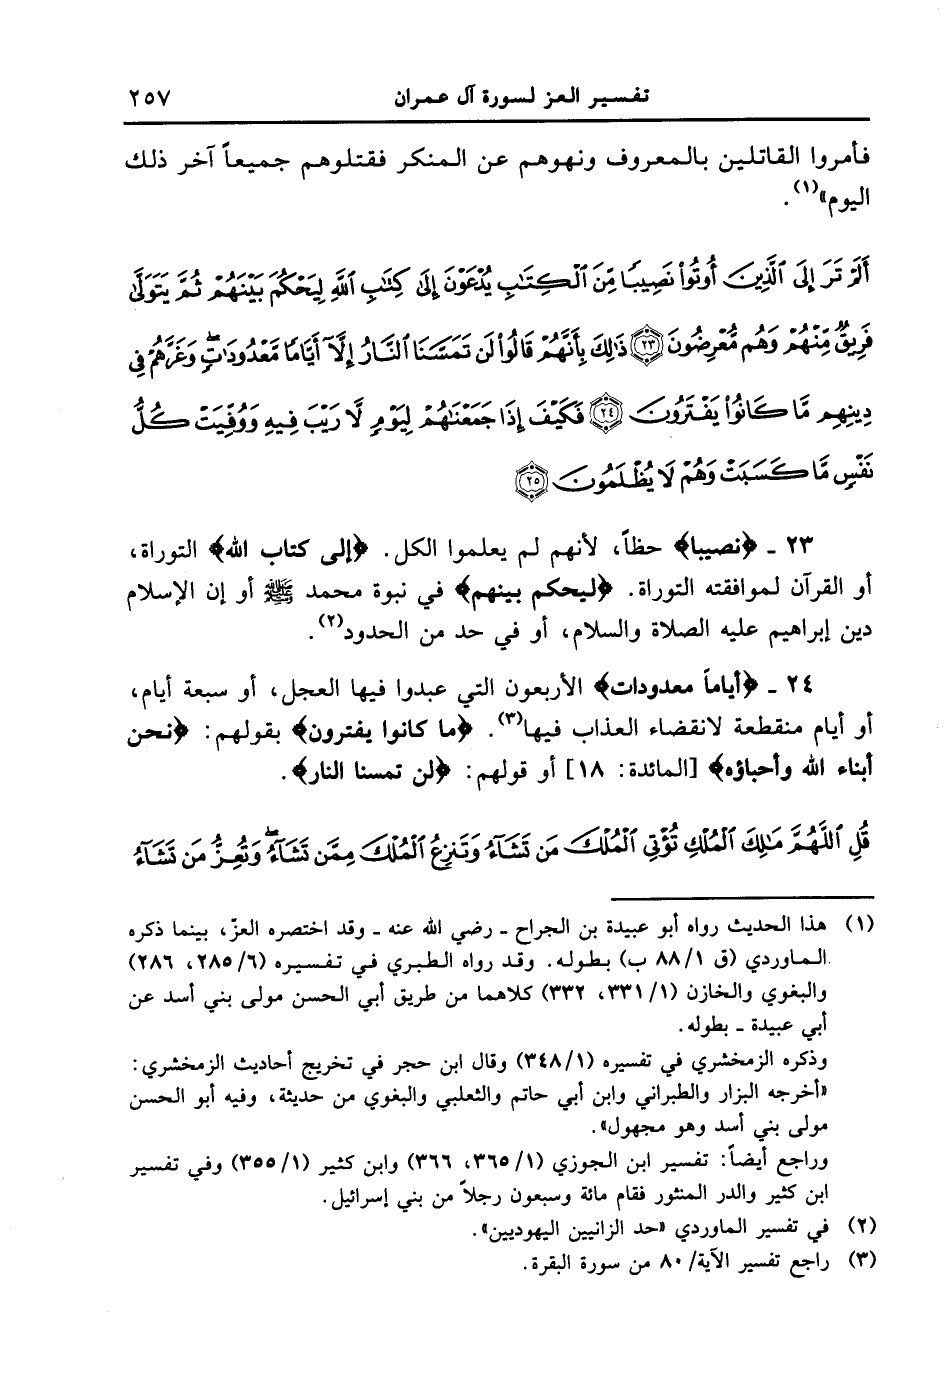 تفسير العز لسورة آل عمران ٢٥٧
فأمروا القاتلين بالمعروف ونهوهم عن المنكر فقتلوهم جميعاً آخر ذلك
اليوم»(١).
أَلَمْ تَرَ إِلَى ٱلَّذِينَ أُوتُوا۟ نَصِيبًا مِّنَ ٱلْكِتَٰبِ يُدْعَوْنَ إِلَىٰ كِتَٰبِ ٱللَّهِ لِيَحْكُمَ بَيْنَهُمْ ثُمَّ يَتَوَلَّىٰ
فَرِيقٌ مِّنْهُمْ وَهُم مُّعْرِضُونَ ﴿٢٣﴾ ذَٰلِكَ بِأَنَّهُمْ قَالُوا۟ لَن تَمَسَّنَا ٱلنَّارُ إِلَّآ أَيَّامًا مَّعْدُودَٰتٍ ۖ وَغَرَّهُمْ فِى
دِينِهِم مَّا كَانُوا۟ يَفْتَرُونَ ﴿٢٤﴾ فَكَيْفَ إِذَا جَمَعْنَٰهُمْ لِيَوْمٍ لَّا رَيْبَ فِيهِ وَوُفِّيَتْ كُلُّ
نَفْسٍ مَّا كَسَبَتْ وَهُمْ لَا يُظْلَمُونَ ﴿٢٥﴾
٢٣ ـ ﴿نصيبا﴾ حظاً، لأنهم لم يعلموا الكل. ﴿إلى كتاب الله﴾ التوراة،
أو القرآن لموافقته التوراة. ﴿ليحكم بينهم﴾ في نبوة محمد ﷺ أو إن الإسلام
دين إبراهيم عليه الصلاة والسلام، أو في حد من الحدود(٢).
٢٤ ـ ﴿أياماً معدودات﴾ الأربعون التي عبدوا فيها العجل، أو سبعة أيام،
أو أيام منقطعة لانقضاء العذاب فيها(٣). ﴿ما كانوا يفترون﴾ بقولهم: ﴿نحن
أبناء الله وأحباؤه﴾ [المائدة: ١٨] أو قولهم: ﴿لن تمسنا النار﴾.
قُلِ ٱللَّهُمَّ مَٰلِكَ ٱلْمُلْكِ تُؤْتِى ٱلْمُلْكَ مَن تَشَآءُ وَتَنزِعُ ٱلْمُلْكَ مِمَّن تَشَآءُ ۖ وَتُعِزُّ مَن تَشَآءُ
(١) هذا الحديث رواه أبو عبيدة بن الجراح ـ رضي الله عنه ـ وقد اختصره العزّ، بينما ذكره
الماوردي (ق ٨٨/١ ب) بطوله. وقد رواه الطبري في تفسيره (٢٨٥/٦، ٢٨٦)
والبغوي والخازن (٣٣١/١، ٣٣٢) كلاهما من طريق أبي الحسن مولى بني أسد عن
أبي عبيدة ـ بطوله.
وذكره الزمخشري في تفسيره (٣٤٨/١) وقال ابن حجر في تخريج أحاديث الزمخشري:
«أخرجه البزار والطبراني وابن أبي حاتم والثعلبي والبغوي من حديثة، وفيه أبو الحسن
مولى بني أسد وهو مجهول».
وراجع أيضاً: تفسير ابن الجوزي (٣٦٥/١، ٣٦٦) وابن كثير (٣٥٥/١) وفي تفسير
ابن كثير والدر المنثور فقام مائة وسبعون رجلاً من بني إسرائيل.
(٢) في تفسير الماوردي «حد الزانيين اليهوديين».
(٣) راجع تفسير الآية/ ٨٠ من سورة البقرة.